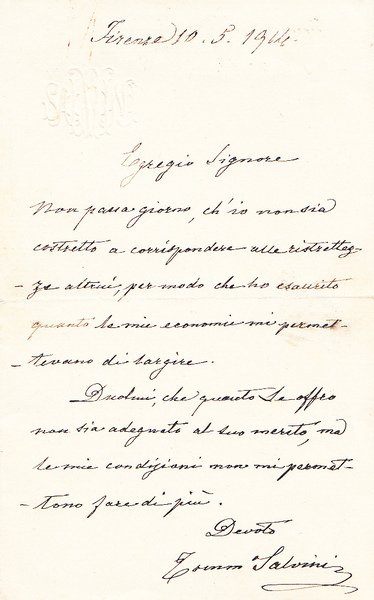 Firenze 10. 5. 1914.
Egregio Signore
Non passa giorno, ch'io non sia
costretto a corrispondere alle ristrettez-
-ze altrui, per modo che ho esaurito
quanto le mie economie mi permet-
-tevano di largire.
Duolmi, che quanto Le offro
non sia adeguato al suo merito, ma
le mie condizioni non mi permet-
-tono fare di più.
Devoto
Salvini